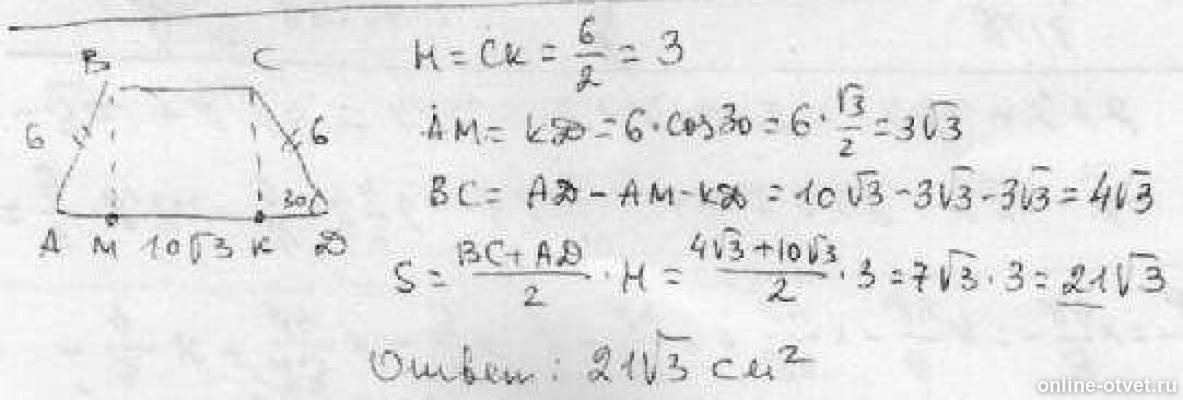 B C
6 6
30
A M 10√3 K D
H = CK = 6/2 = 3
AM = KD = 6 · cos 30 = 6 · √3/2 = 3√3
BC = AD - AM - KD = 10√3 - 3√3 - 3√3 = 4√3
S = (BC + AD)/2 · H = (4√3 + 10√3)/2 · 3 = 7√3 · 3 = 21√3
Ответ: 21√3 см²
online-otvet.ru